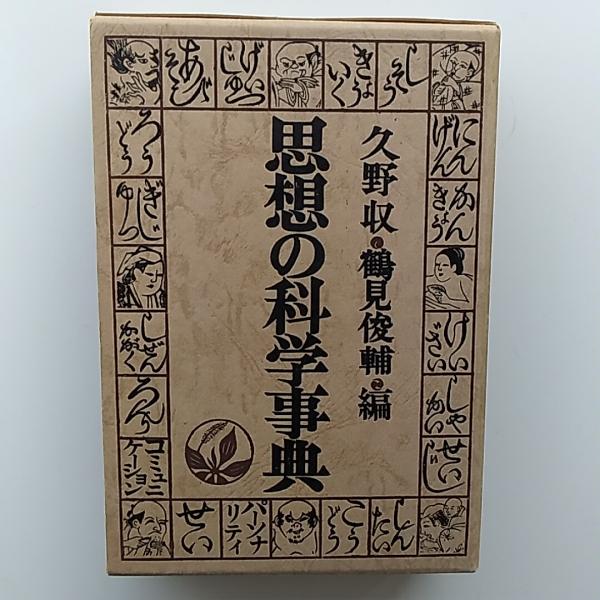 久野収・鶴見俊輔・編
思想の科学事典
しそう
きょう
いく
げい
じゅつ
あそび
にん
げん
かん
きょう
けい
ざい
しゃ
かい
せいじ
しん
たい
こう
どう
パーソナ
リティ
せい
ろう
どう
ぎじ
ゅつ
しぜん
かがく
ろんり
コミュニ
ケーション